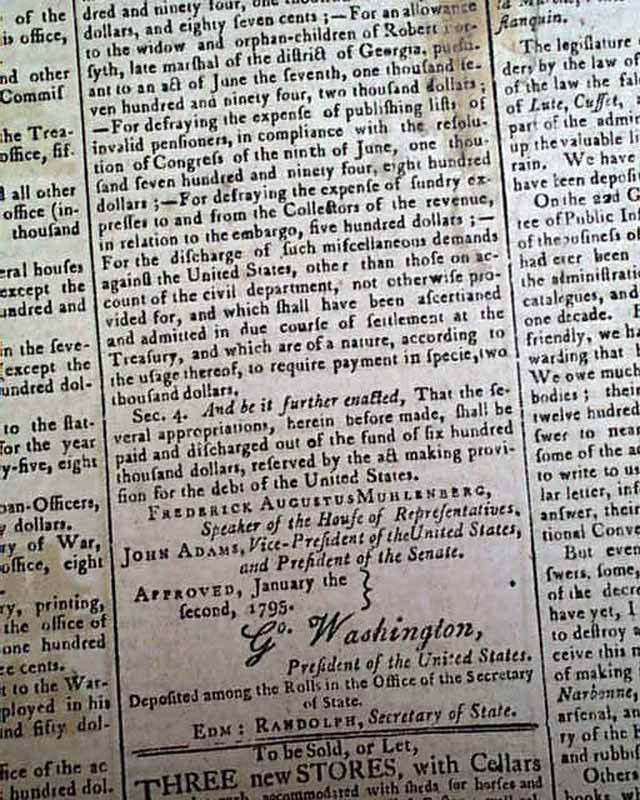 of the
is office,
nd other
Commiſ
he Trea-
office, fif-
d all other
office (in-
thouſand
eral houſes
except the
undred and
in the ſeve-
except the
hundred dol-
to the ſtat-
for the year
ty-five, eight
oan-Officers,
y dollars.
ry of War,
office, eight
ry, printing,
the office of
one hundred
ee cents.
t to the War-
ployed in his
nd fifty dol-
ffice of the ac
hundred dol.
dred and ninety four, one
dollars, and eighty ſeven cents ;—For an allowance
to the widow and orphan-children of Robert For-
ſyth, late marſhal of the diſtrict of Georgia, purſu-
ant to an act of June the ſeventh, one thouſand ſe-
ven hundred and ninety four, two thouſand dollars ;
—For defraying the expenſe of publiſhing liſts of
invalid penſioners, in compliance with the reſolu-
tion of Congreſs of the ninth of June, one thou-
ſand ſeven hundred and ninety four, eight hundred
dollars ;—For defraying the expenſe of ſundry ex-
preſſes to and from the Collectors of the revenue,
in relation to the embargo, five hundred dollars ;—
For the diſcharge of ſuch miſcellaneous demands
againſt the United States, other than thoſe on ac-
count of the civil department, not otherwiſe pro-
vided for, and which ſhall have been aſcertained
and admitted in due courſe of ſettlement at the
Treaſury, and which are of a nature, according to
the uſage thereof, to require payment in ſpecie, two
thouſand dollars.
Sec. 4. And be it further enacted, That the ſe-
veral appropriations, herein before made, ſhall be
paid and diſcharged out of the fund of ſix hundred
thouſand dollars, reſerved by the act making provi-
ſion for the debt of the United States.
FREDERICK AUGUSTUS MUHLENBERG,
Speaker of the Houſe of Repreſentatives.
JOHN ADAMS, Vice-Preſident of the United States,
and Preſident of the Senate.
APPROVED, January the
ſecond, 1795.
Go. Washington,
Preſident of the United States.
Depoſited among the Rolls in the Office of the Secretary
of State.
EDM: RANDOLPH, Secretary of State.
To be Sold, or Let,
THREE new STORES, with Cellars
accommodated with ſheds for horſes and
ſtanquin.
The legiſlature
ders by the law of
of the law the fa
of Lute, Cuffet,
part of the admin
up the valuable li
rain. We have
have been depoſit
On the 22d G
tee of Public In
of the buſineſs of
had ever been
the adminiſtrati
catalogues, and
one decade.
friendly, we ha
warding that
We owe much
bodies ; their
twelve hudred
ſwer to near
ſome of the ad
to write to us
lar letter, inf
anſwer, their
tional Conve
But even
ſwers, ſome,
of the decre
have yet, I
to deſtroy a
ceive this m
of making
Narbonne,
arſenal, an
ry of the
and rubbiſ
Others
books